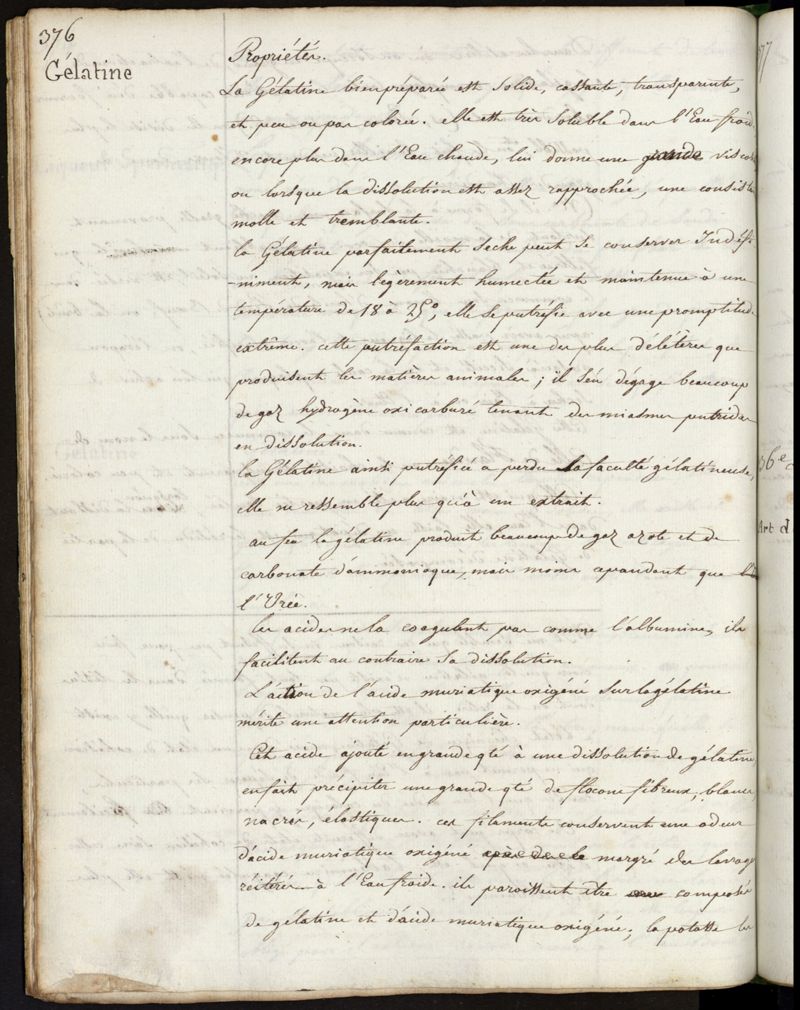 376
Gélatine
Propriétés.
La Gélatine bien préparée est solide, cassante, transparente,
et peu ou pas colorée. elle est très soluble dans l'Eau froide
encore plus dans l'Eau chaude, lui donne une grande viscos
ou lorsque la dissolution est assez rapprochée, une consista
molle et tremblante.
la Gélatine parfaitement seche peut se conserver Indéfi
-niment, mais legèrement humectée et maintenue à une
température de 18 à 25°, elle se putréfie avec une promptitude
extrême. cette putréfaction est une des plus délétères que
produisent les matières animales; il s'en dégage beaucoup
de gaz hydrogène oxicarburé tenant des miasmes putrides
en dissolution.
la Gélatine ainsi putréfiée a perdu la faculté gélatineuse,
elle ne ressemble plus qu'à un extrait.
au feu la gélatine produit beaucoup de gaz azote et de
carbonate d'ammoniaque, mais moins cependant que
l'Urée.
les acides ne la coagulent pas comme l'albumine, ils
facilitent au contraire sa dissolution.
L'action de l'acide muriatique oxigéné sur la gélatine
mérite une attention particulière.
Cet acide ajouté en grande qté à une dissolution de gélatine
en fait précipiter une grande qté de flocons fibreux, blancs,
nacrés, élastiques. ces filaments conservent une odeur
d'acide muriatique oxigéné margré des lavages
réitérés à l'Eau froide. ils paroissent être composés
de gélatine et d'acide muriatique oxigéné; la potasse les
77
36e
Art d